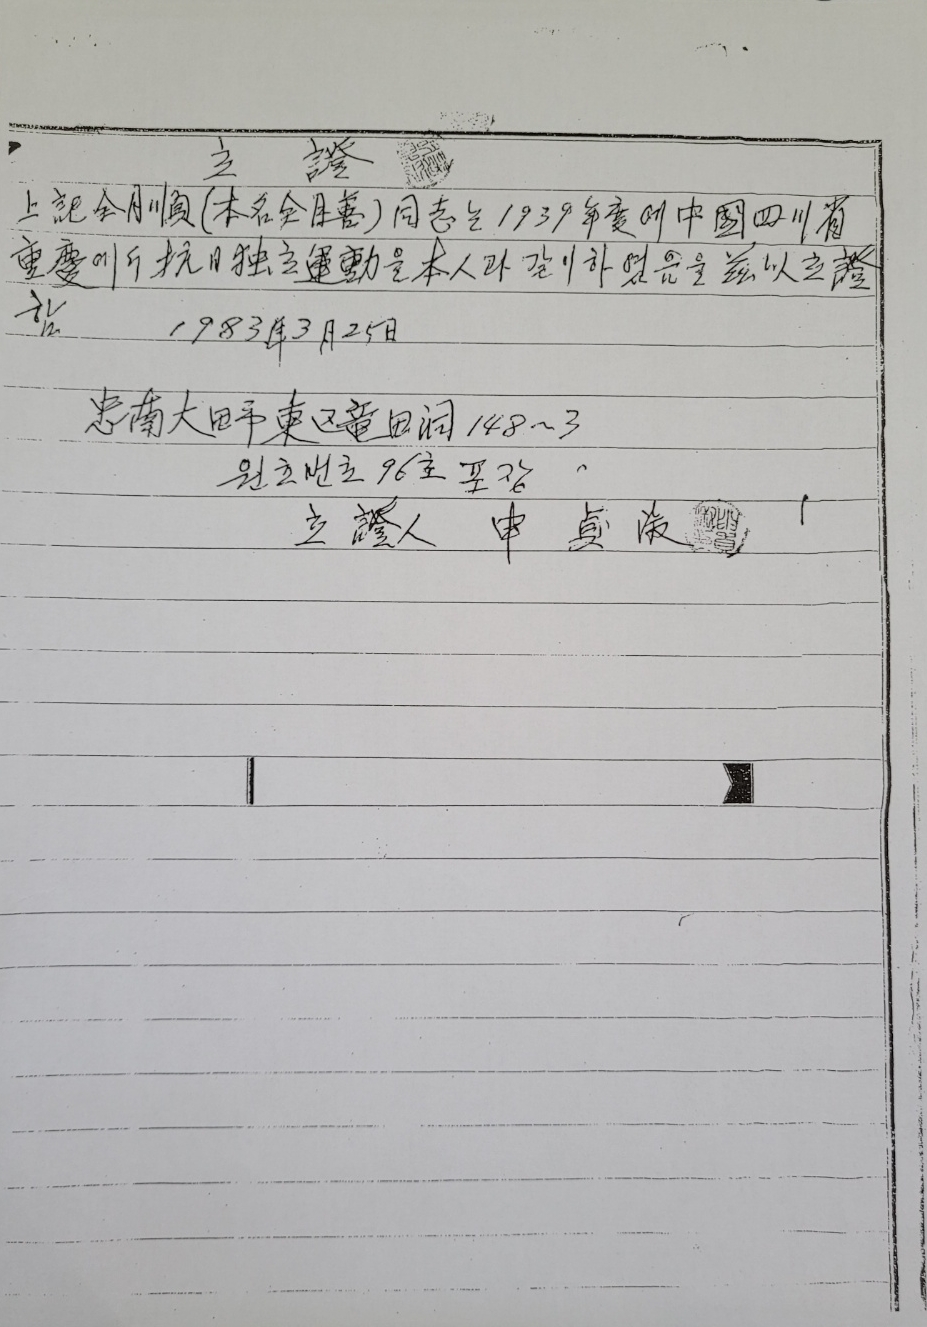 立證
上記 金月順(本名 金月善) 同志는 1939年度에 中國四川省
重慶에서 抗日独立運動을 本人과 같이 하였음을 玆以立證
함 1983年3月25日
忠南大田市東区龍田洞 148~3
원호번호 96호 포장
立證人 申貞淑